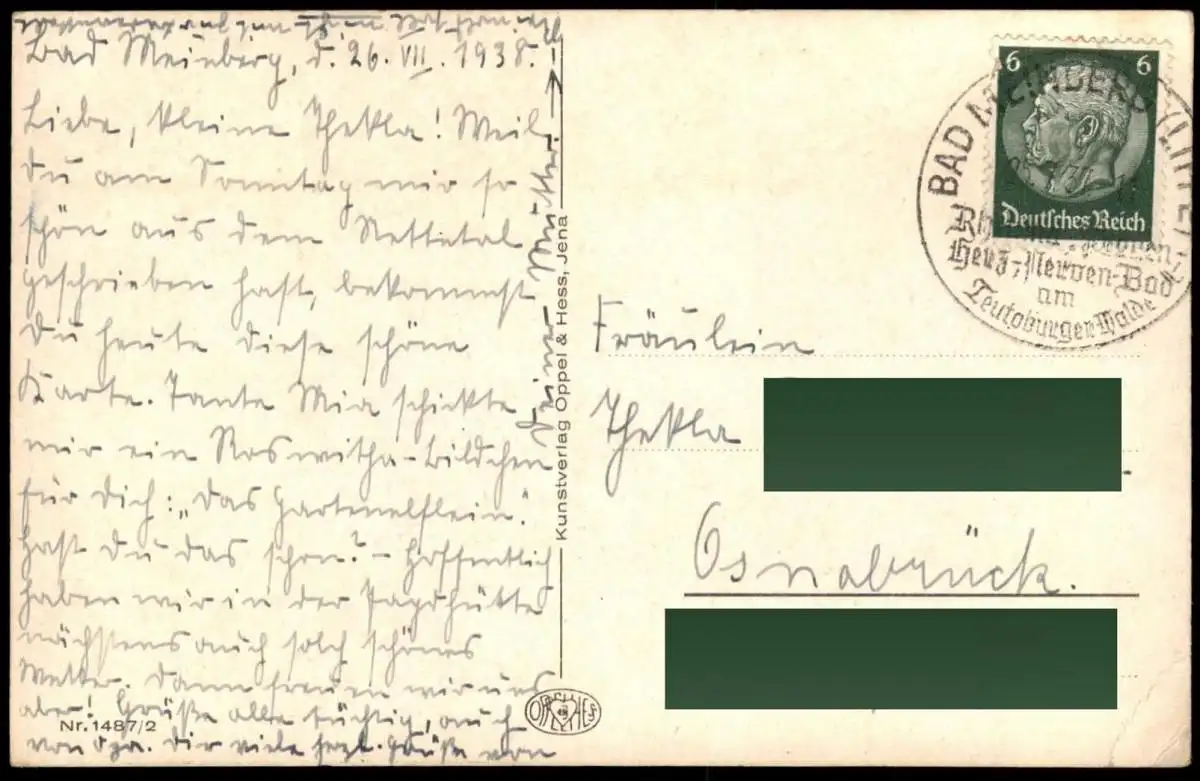 Bad Meinberg, d. 26. VII. 1938.
Liebe, kleine Thekla! Weil
du am Sonntag mir so
schön aus dem Nettetal
geschrieben hast, bekommst
du heute diese schöne
Karte. Tante Mia schickte
mir ein Roswitha-Bildchen
für Dich: „Das Gartenelflein".
Hast Du das schon? – Hoffentlich
haben wir in der Jagdhütte
nächstens auch solch schönes
Wetter. Dann freuen wir uns
aber! Grüße alle tüchtig, auch
von Opa. Dir viele herzl. Grüße von
Deiner Mutter.
Nr. 1487/2
Kunstverlag Oppel & Hess, Jena
6 6
Deutsches Reich
BAD MEINBERG (LIPPE)
Herz-, Nerven-Bad
am
Teutoburger Walde
Fräulein
Thekla
Osnabrück.